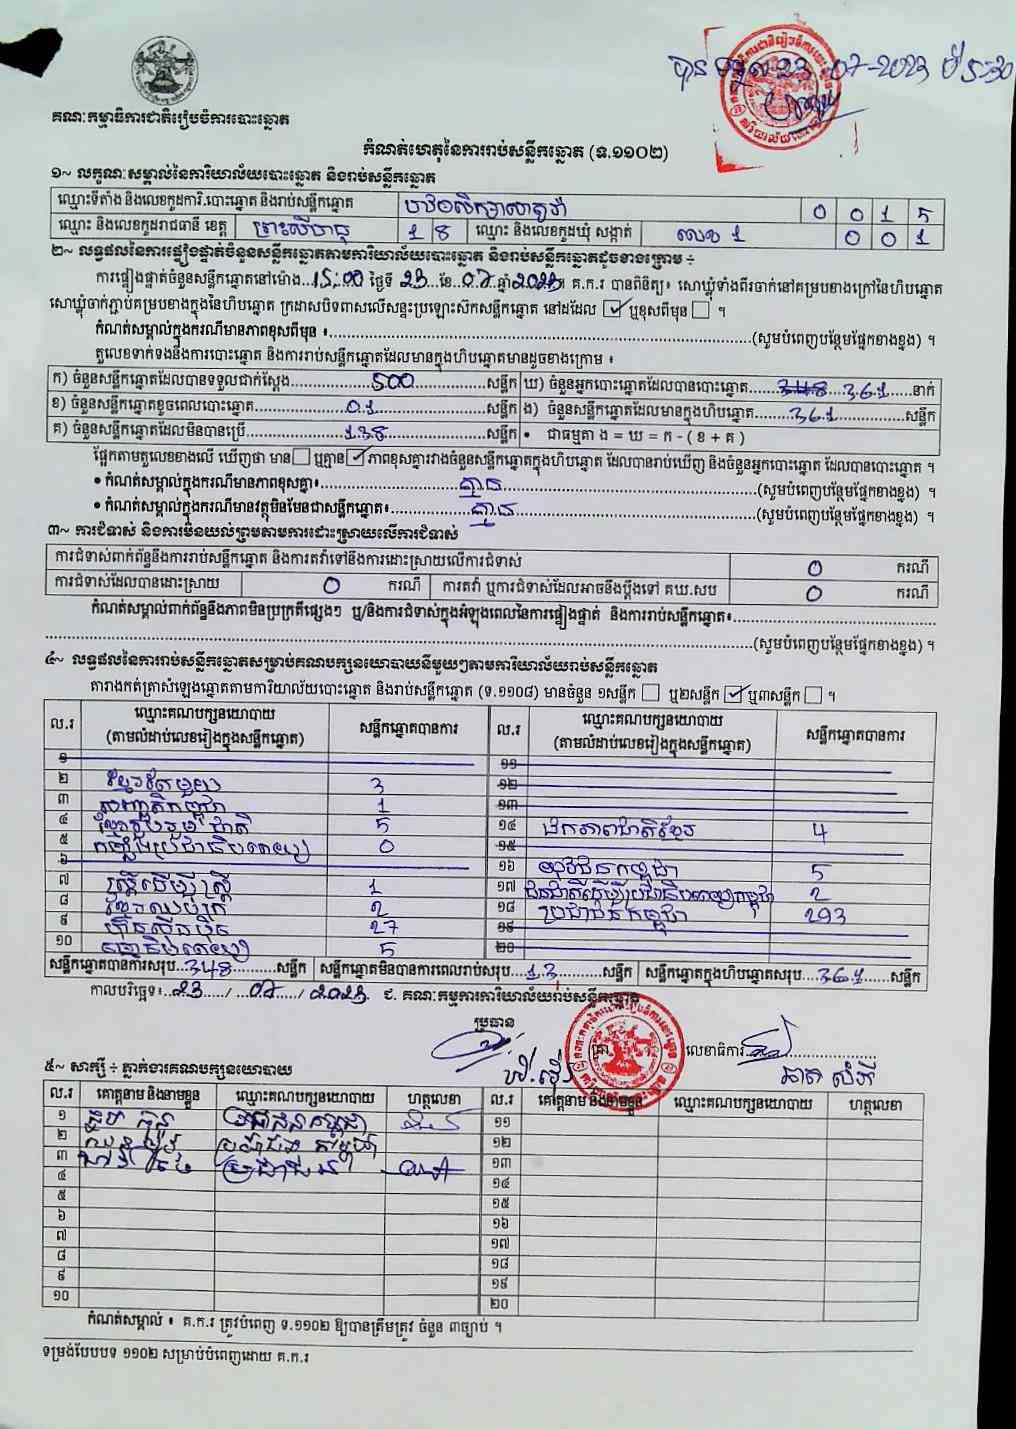 បាន ទទួល 23 07-2023
គណៈកម្មាធិការជាតិរៀបចំការបោះឆ្នោត
កំណត់ហេតុនៃការរាប់សន្លឹកឆ្នោត (ទ.១១០២)
១~ លក្ខណៈសម្គាល់នៃការិយាល័យបោះឆ្នោត និងរាប់សន្លឹកឆ្នោត
ឈ្មោះទីតាំង និងលេខកូដការិ.បោះឆ្នោត និងរាប់សន្លឹកឆ្នោត 0 0 1 5
ឈ្មោះ និងលេខកូដរាជធានី ខេត្ត ព្រះសីហនុ 1 8 ឈ្មោះ និងលេខកូដឃុំ សង្កាត់ លេខ 1 0 0 1
២~ លទ្ធផលនៃការផ្ទៀងផ្ទាត់ចំនួនសន្លឹកឆ្នោតតាមការិយាល័យបោះឆ្នោត និងរាប់សន្លឹកឆ្នោតដូចខាងក្រោម ÷
ការផ្ទៀងផ្ទាត់ចំនួនសន្លឹកឆ្នោតនៅម៉ោង..15:00 ថ្ងៃទី 23 ..ខែ..07 ឆ្នាំ 2023។ គ.ក.រ បានពិនិត្យ៖ សោឃ្លុំទាំងពីរចាក់នៅគម្របខាងក្រៅនៃហិបឆ្នោត
សោឃ្លុំចាក់ភ្ជាប់គម្របខាងក្នុងនៃហិបឆ្នោត ក្រដាសបិទពាសលើសន្ទះប្រឡោះស៊កសន្លឹកឆ្នោត នៅដដែល ☑ ឬខុសពីមុន ☐ ។
កំណត់សម្គាល់ក្នុងករណីមានភាពខុសពីមុន ៖.....(សូមបំពេញបន្ថែមផ្នែកខាងខ្នង) ។
តួលេខទាក់ទងនឹងការបោះឆ្នោត និងការរាប់សន្លឹកឆ្នោតដែលមានក្នុងហិបឆ្នោតមានដូចខាងក្រោម ៖
ក) ចំនួនសន្លឹកឆ្នោតដែលបានទទួលជាក់ស្តែង.....500.....សន្លឹក ឃ) ចំនួនអ្នកបោះឆ្នោតដែលបានបោះឆ្នោត.....348 361.....នាក់
ខ) ចំនួនសន្លឹកឆ្នោតខូចពេលបោះឆ្នោត.....01.....សន្លឹក ង) ចំនួនសន្លឹកឆ្នោតដែលមានក្នុងហិបឆ្នោត.....361.....សន្លឹក
គ) ចំនួនសន្លឹកឆ្នោតដែលមិនបានប្រើ.....138.....សន្លឹក • ជាធម្មតា ង = ឃ = ក - ( ខ + គ )
ផ្អែកតាមតួលេខខាងលើ ឃើញថា មាន ☐ ឬគ្មាន ☑ ភាពខុសគ្នារវាងចំនួនសន្លឹកឆ្នោតក្នុងហិបឆ្នោត ដែលបានរាប់ឃើញ និងចំនួនអ្នកបោះឆ្នោត ដែលបានបោះឆ្នោត ។
• កំណត់សម្គាល់ក្នុងករណីមានភាពខុសគ្នា៖.....គ្មាន.....(សូមបំពេញបន្ថែមផ្នែកខាងខ្នង) ។
• កំណត់សម្គាល់ក្នុងករណីមានវត្ថុមិនមែនជាសន្លឹកឆ្នោត៖.....គ្មាន.....(សូមបំពេញបន្ថែមផ្នែកខាងខ្នង) ។
៣~ ការជំទាស់ និងការមិនយល់ព្រមតាមការដោះស្រាយលើការជំទាស់
ការជំទាស់ពាក់ព័ន្ធនឹងការរាប់សន្លឹកឆ្នោត និងការតវ៉ាទៅនឹងការដោះស្រាយលើការជំទាស់ 0 ករណី
ការជំទាស់ដែលបានដោះស្រាយ 0 ករណី ការតវ៉ា ឬការជំទាស់ដែលអាចនឹងប្តឹងទៅ គឃ.សប 0 ករណី
កំណត់សម្គាល់ពាក់ព័ន្ធនឹងភាពមិនប្រក្រតីផ្សេងៗ ឬ/និងការជំទាស់ក្នុងអំឡុងពេលនៃការផ្ទៀងផ្ទាត់ និងការរាប់សន្លឹកឆ្នោត៖.....
.....(សូមបំពេញបន្ថែមផ្នែកខាងខ្នង) ។
៤~ លទ្ធផលនៃការរាប់សន្លឹកឆ្នោតសម្រាប់គណបក្សនយោបាយនីមួយៗតាមការិយាល័យរាប់សន្លឹកឆ្នោត
តារាងកត់ត្រាសំឡេងឆ្នោតតាមការិយាល័យបោះឆ្នោត និងរាប់សន្លឹកឆ្នោត (ទ.១១០៨) មានចំនួន ១សន្លឹក ☐ ឬ២សន្លឹក ☑ ឬ៣សន្លឹក ☐ ។
ល.រ ឈ្មោះគណបក្សនយោបាយ (តាមលំដាប់លេខរៀងក្នុងសន្លឹកឆ្នោត) សន្លឹកឆ្នោតបានការ ល.រ ឈ្មោះគណបក្សនយោបាយ (តាមលំដាប់លេខរៀងក្នុងសន្លឹកឆ្នោត) សន្លឹកឆ្នោតបានការ
១ ១១
២ ខ្មែរតែមួយ 3 ១២
៣ 1 ១៣
៤ ខ្មែររួបរួមជាតិ 5 ១៤ ឯកភាពជាតិខ្មែរ 4
៥ កម្លាំងប្រជាធិបតេយ្យ 0 ១៥
៦ ១៦ យុវជនកម្ពុជា 5
៧ ស្ត្រីដើម្បីស្ត្រី 1 ១៧ ជនជាតិដើមប្រជាធិបតេយ្យកម្ពុជា 2
៨ ខ្មែរឈប់ក្រ 2 ១៨ ប្រជាជនកម្ពុជា 293
៩ ហ៊្វុនស៊ិនប៉ិច 27 ១៩
១០ 5 ២០
សន្លឹកឆ្នោតបានការសរុប...348......សន្លឹក សន្លឹកឆ្នោតមិនបានការពេលរាប់សរុប...13......សន្លឹក សន្លឹកឆ្នោតក្នុងហិបឆ្នោតសរុប...361......សន្លឹក
កាលបរិច្ឆេទ៖..23...../ ..07...../ 2023 ជ. គណៈកម្មការការិយាល័យរាប់សន្លឹកឆ្នោត
ប្រធាន លេខាធិការ
៥~ សាក្សី ÷ ភ្នាក់ងារគណបក្សនយោបាយ
ល.រ គោត្តនាម និងនាមខ្លួន ឈ្មោះគណបក្សនយោបាយ ហត្ថលេខា ល.រ គោត្តនាម និងនាមខ្លួន ឈ្មោះគណបក្សនយោបាយ ហត្ថលេខា
១ ១១
២ ប្រជាជនកម្ពុជា ១២
៣ ប្រជាជន ១៣
៤ ១៤
៥ ១៥
៦ ១៦
៧ ១៧
៨ ១៨
៩ ១៩
១០ ២០
កំណត់សម្គាល់ ៖ គ.ក.រ ត្រូវបំពេញ ទ.១១០២ ឱ្យបានត្រឹមត្រូវ ចំនួន ៣ច្បាប់ ។
ទម្រង់បែបបទ ១១០២ សម្រាប់បំពេញដោយ គ.ក.រ